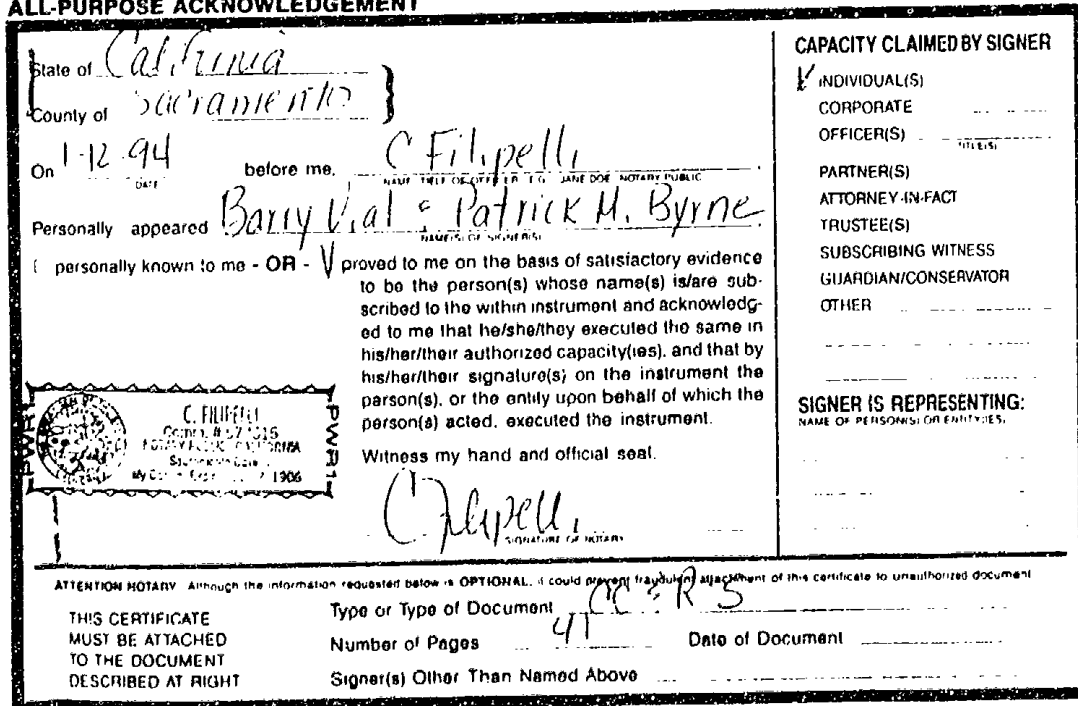 ALL-PURPOSE ACKNOWLEDGEMENT
State of California
County of Sacramento
On 1-12-94 before me, C Filipelli
DATE NAME, TITLE OF OFFICER E.G. JANE DOE NOTARY PUBLIC
Personally appeared Barry Vial & Patrick M. Byrne
NAME(S) OF SIGNER(S)
personally known to me - OR - proved to me on the basis of satisfactory evidence
to be the person(s) whose name(s) is/are sub-
scribed to the within instrument and acknowledg-
ed to me that he/she/they executed the same in
his/her/their authorized capacity(ies), and that by
his/her/their signature(s) on the instrument the
person(s), or the entity upon behalf of which the
person(s) acted, executed the instrument.
Witness my hand and official seal.
C Filipelli
SIGNATURE OF NOTARY
PWR1
C. FILIPELLI
Comm. #
NOTARY PUBLIC CALIFORNIA
My Comm.
PWR1
CAPACITY CLAIMED BY SIGNER
INDIVIDUAL(S)
CORPORATE
OFFICER(S)
TITLE(S)
PARTNER(S)
ATTORNEY-IN-FACT
TRUSTEE(S)
SUBSCRIBING WITNESS
GUARDIAN/CONSERVATOR
OTHER
SIGNER IS REPRESENTING:
NAME OF PERSON(S) OR ENTITY(IES)
ATTENTION NOTARY Although the information requested below is OPTIONAL, it could prevent fraudulent attachment of this certificate to unauthorized document
THIS CERTIFICATE
MUST BE ATTACHED
TO THE DOCUMENT
DESCRIBED AT RIGHT
Type or Type of Document CC&RS
Number of Pages 41 Date of Document
Signer(s) Other Than Named Above